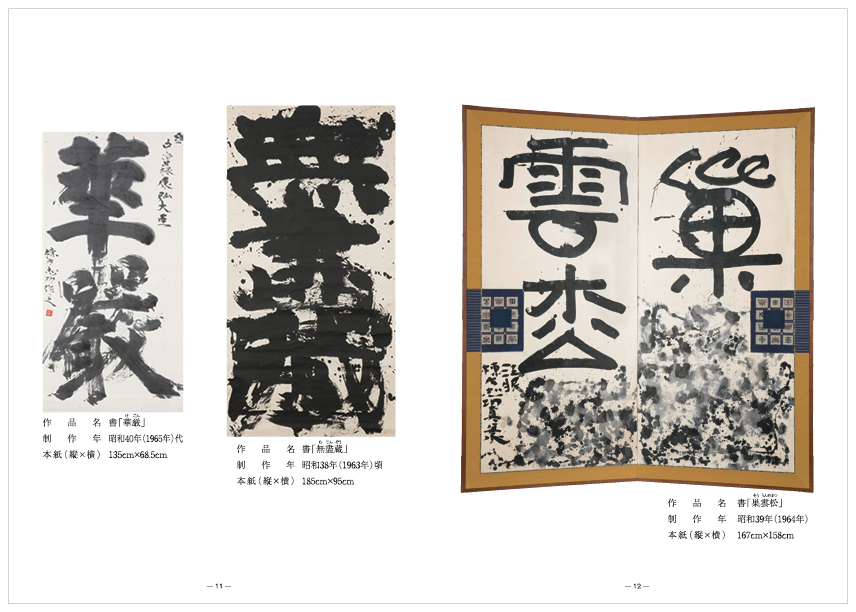 華
嚴
作品名 書「華厳」
制作年 昭和40年(1965年)代
本紙(縦×横) 135cm×68.5cm
無
盡
蔵
作品名 書「無盡蔵」
制作年 昭和38年(1963年)頃
本紙(縦×横) 185cm×95cm
巣
雲
松
作品名 書「巣雲松」
制作年 昭和39年(1964年)
本紙(縦×横) 167cm×158cm
— 11 —
— 12 —